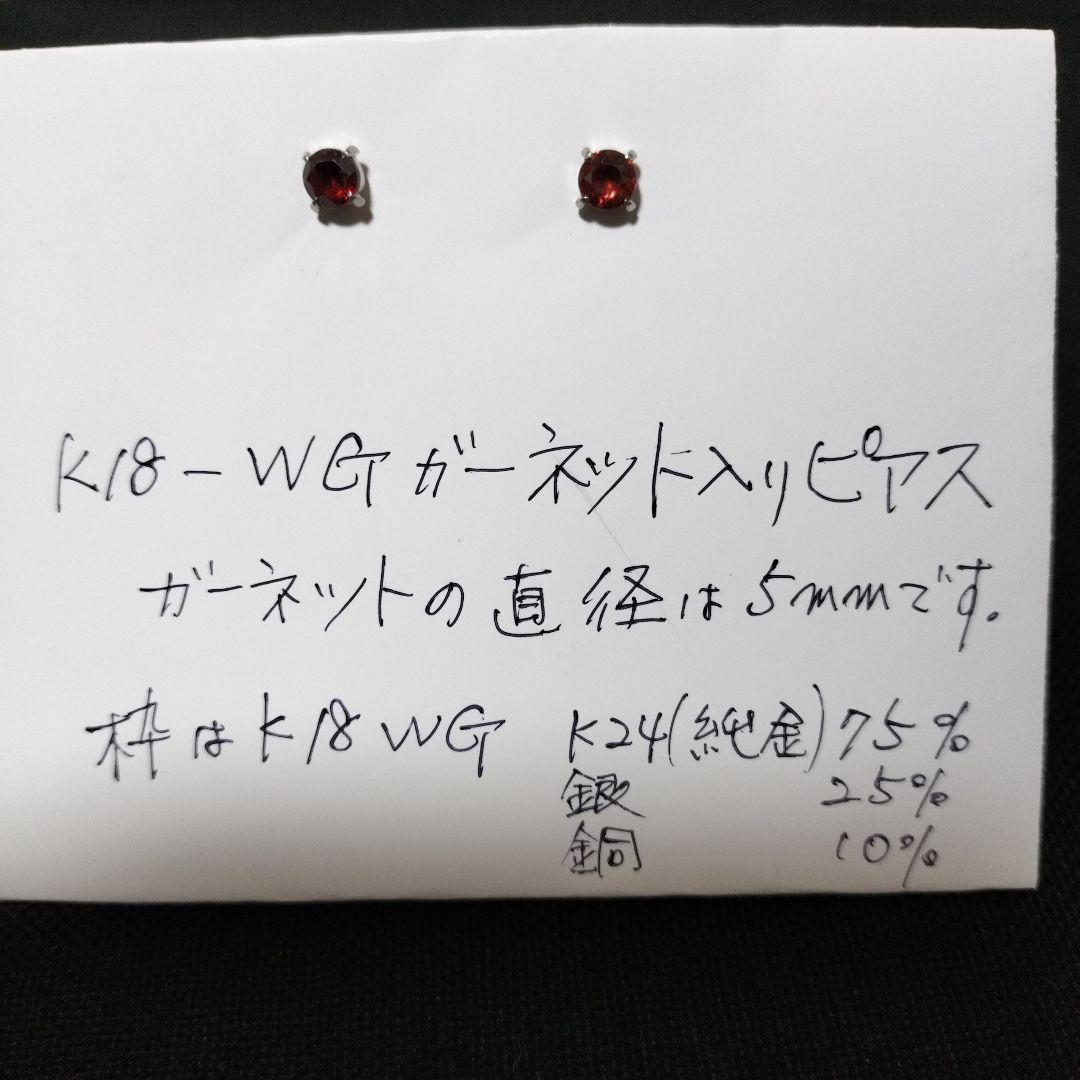 K18-WG ガーネット入りピアス
ガーネットの直径は5mmです。
枠はK18WG K24(純金)75%
銀 25%
銅 10%